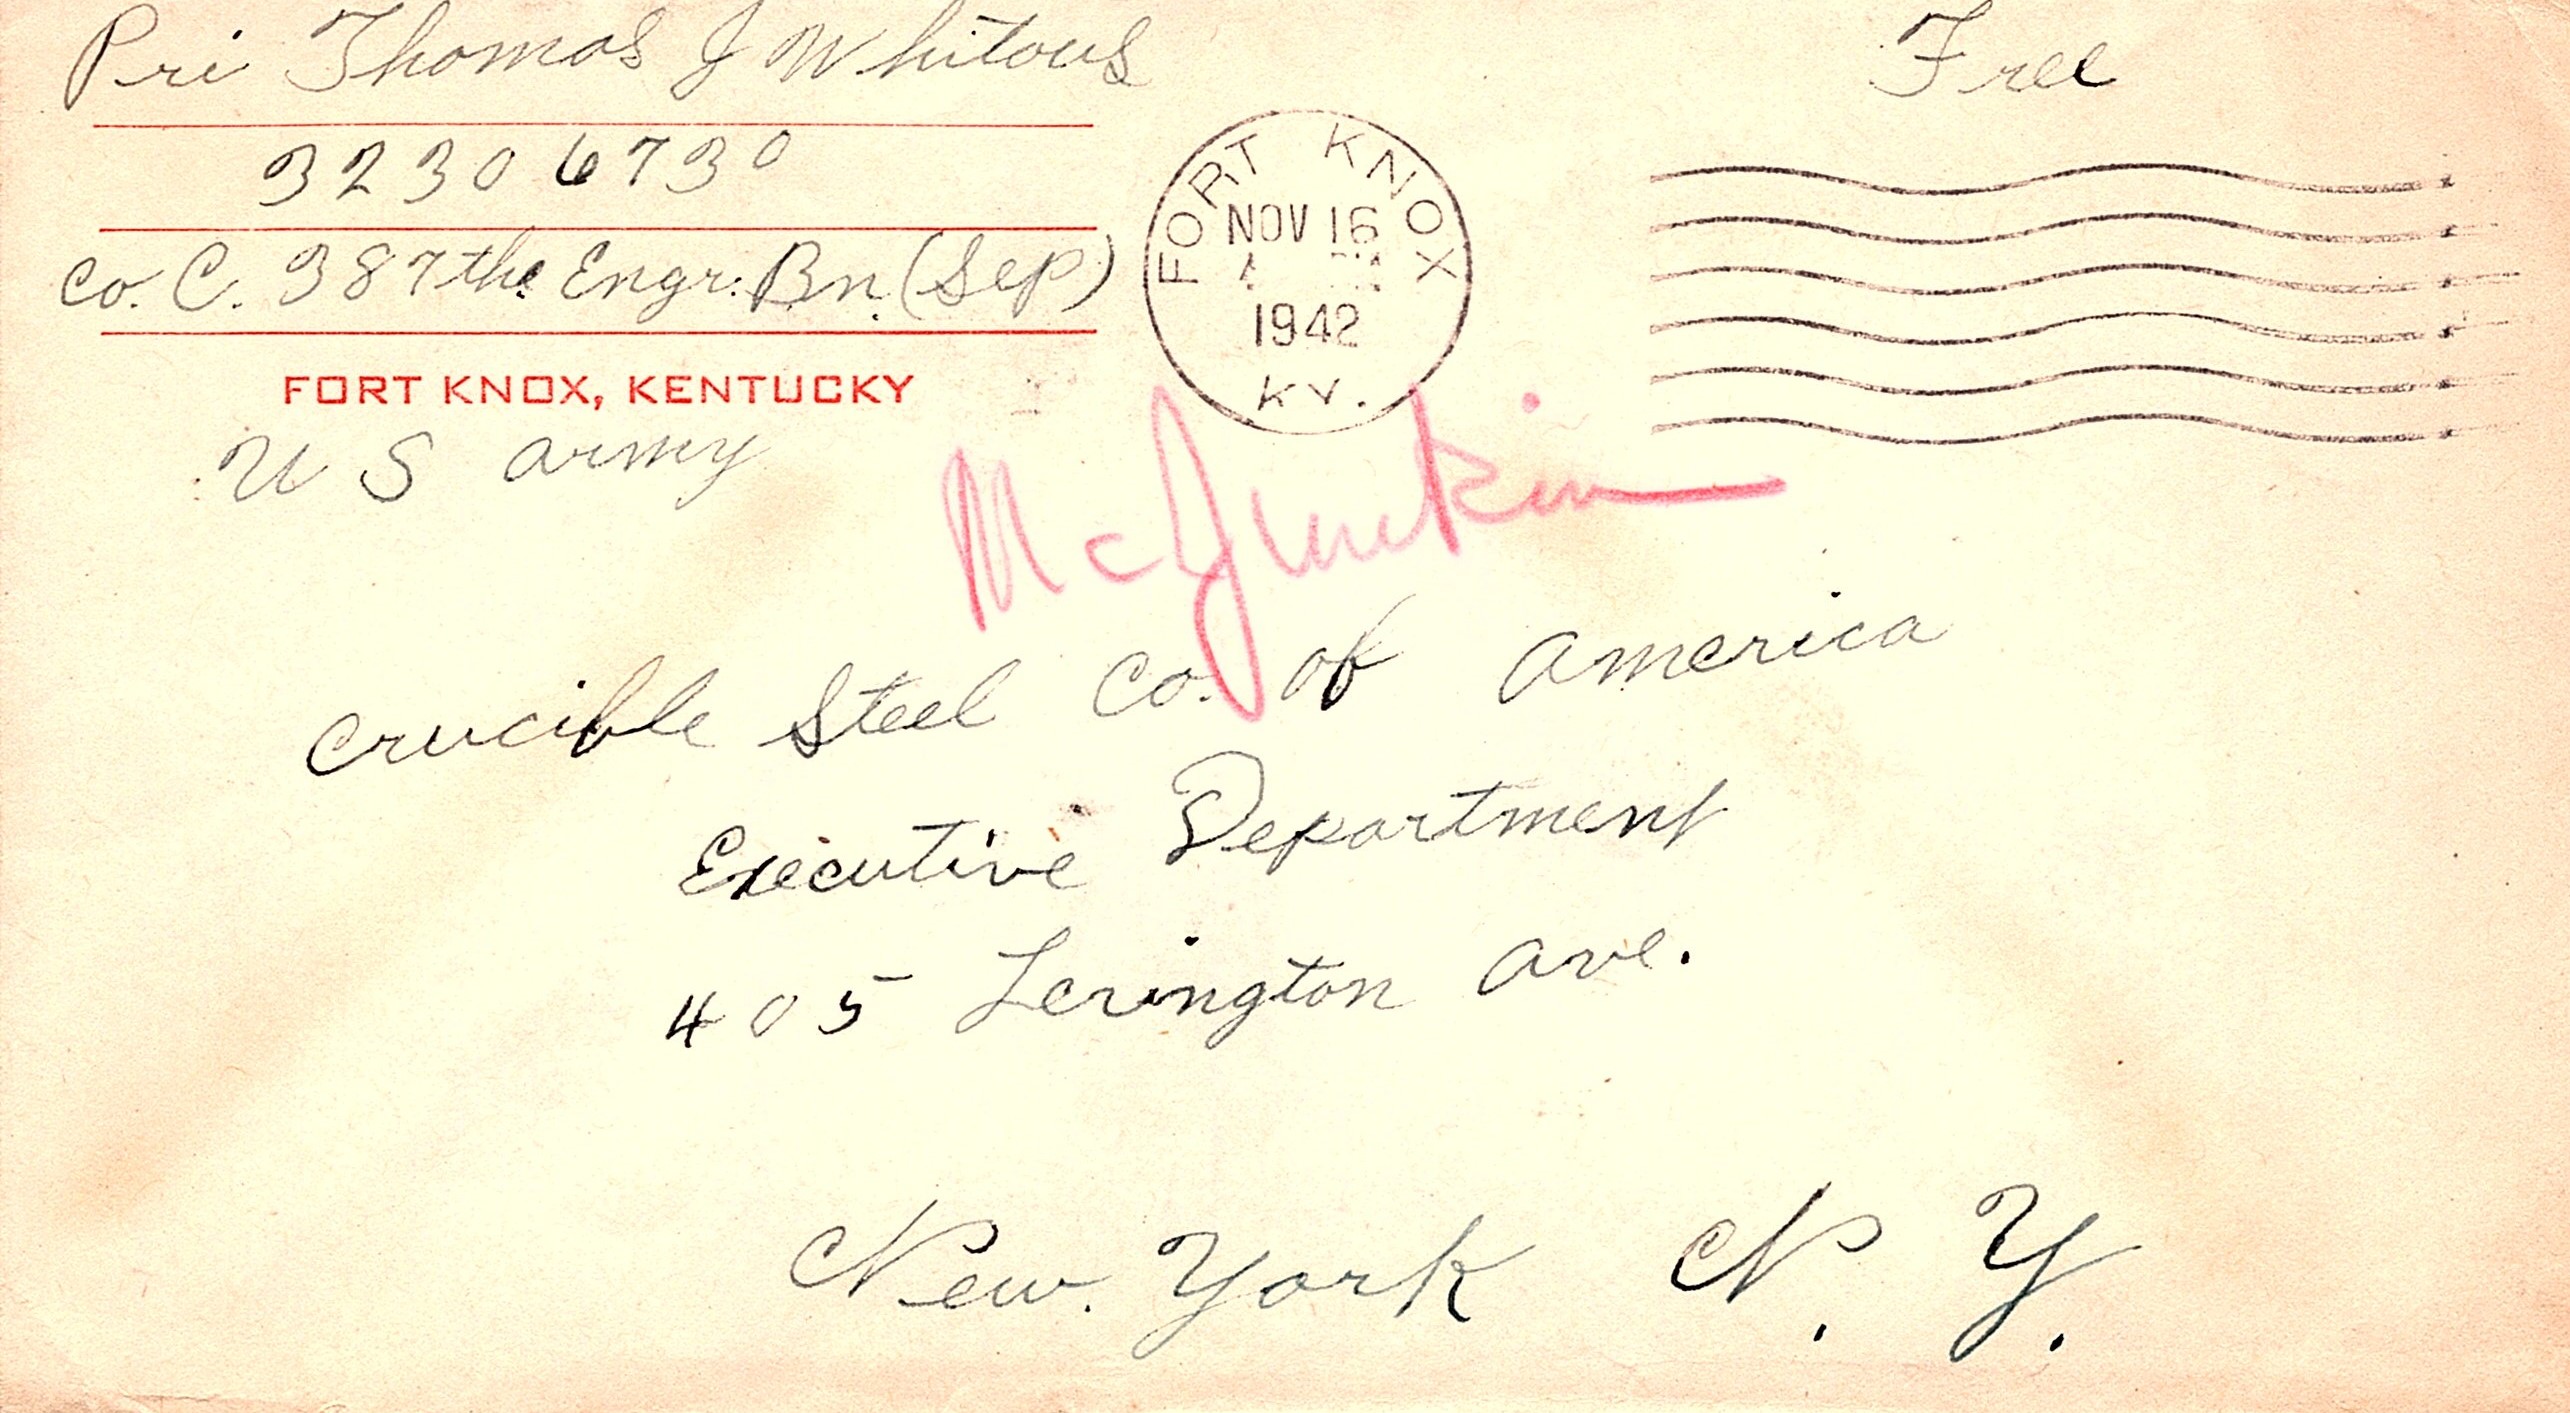 Pri Thomas J Whitous
Free
32306730
Co. C. 387th. Engr. Bn. (Sep)
FORT KNOX, KENTUCKY
U S Army
FORT KNOX
NOV 16
1942
KY.
McJunkin
Crucible Steel Co. of America
Executive Department
405 Lexington Ave.
New. York N. Y.